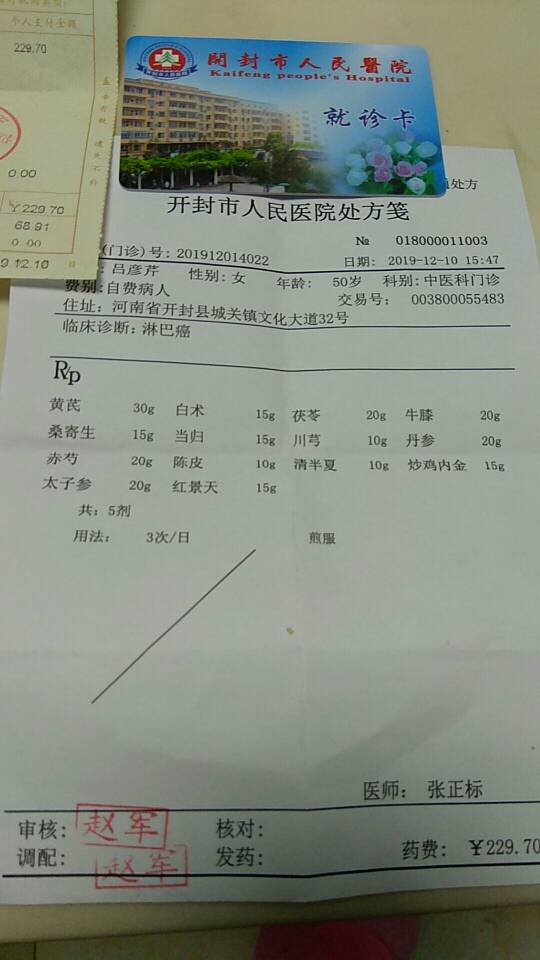 个人支付金额
229.70
0.00
¥229.70
68.91
0 00
9 12.10
盖章有效 遗失不补
開封市人民醫院
Kaifeng people's Hospital
就诊卡
处方
开封市人民医院处方笺
№ 018000011003
(门诊)号: 201912014022 日期: 2019-12-10 15:47
: 吕彦芹 性别: 女 年龄: 50岁 科别: 中医科门诊
费别: 自费病人 交易号: 003800055483
住址: 河南省开封县城关镇文化大道32号
临床诊断: 淋巴癌
Rp
黄芪 30g 白术 15g 茯苓 20g 牛膝 20g
桑寄生 15g 当归 15g 川芎 10g 丹参 20g
赤芍 20g 陈皮 10g 清半夏 10g 炒鸡内金 15g
太子参 20g 红景天 15g
共: 5剂
用法: 3次/日 煎服
医师: 张正标
审核: 赵军 核对:
调配: 赵军 发药: 药费: ¥229.70